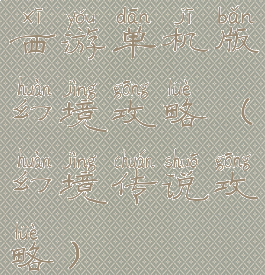 xī yóu dān jī bǎn
西游单机版
huàn jìng gōng lüè
幻境攻略（
huàn jìng chuán shuō gōng
幻境传说攻
lüè
略）